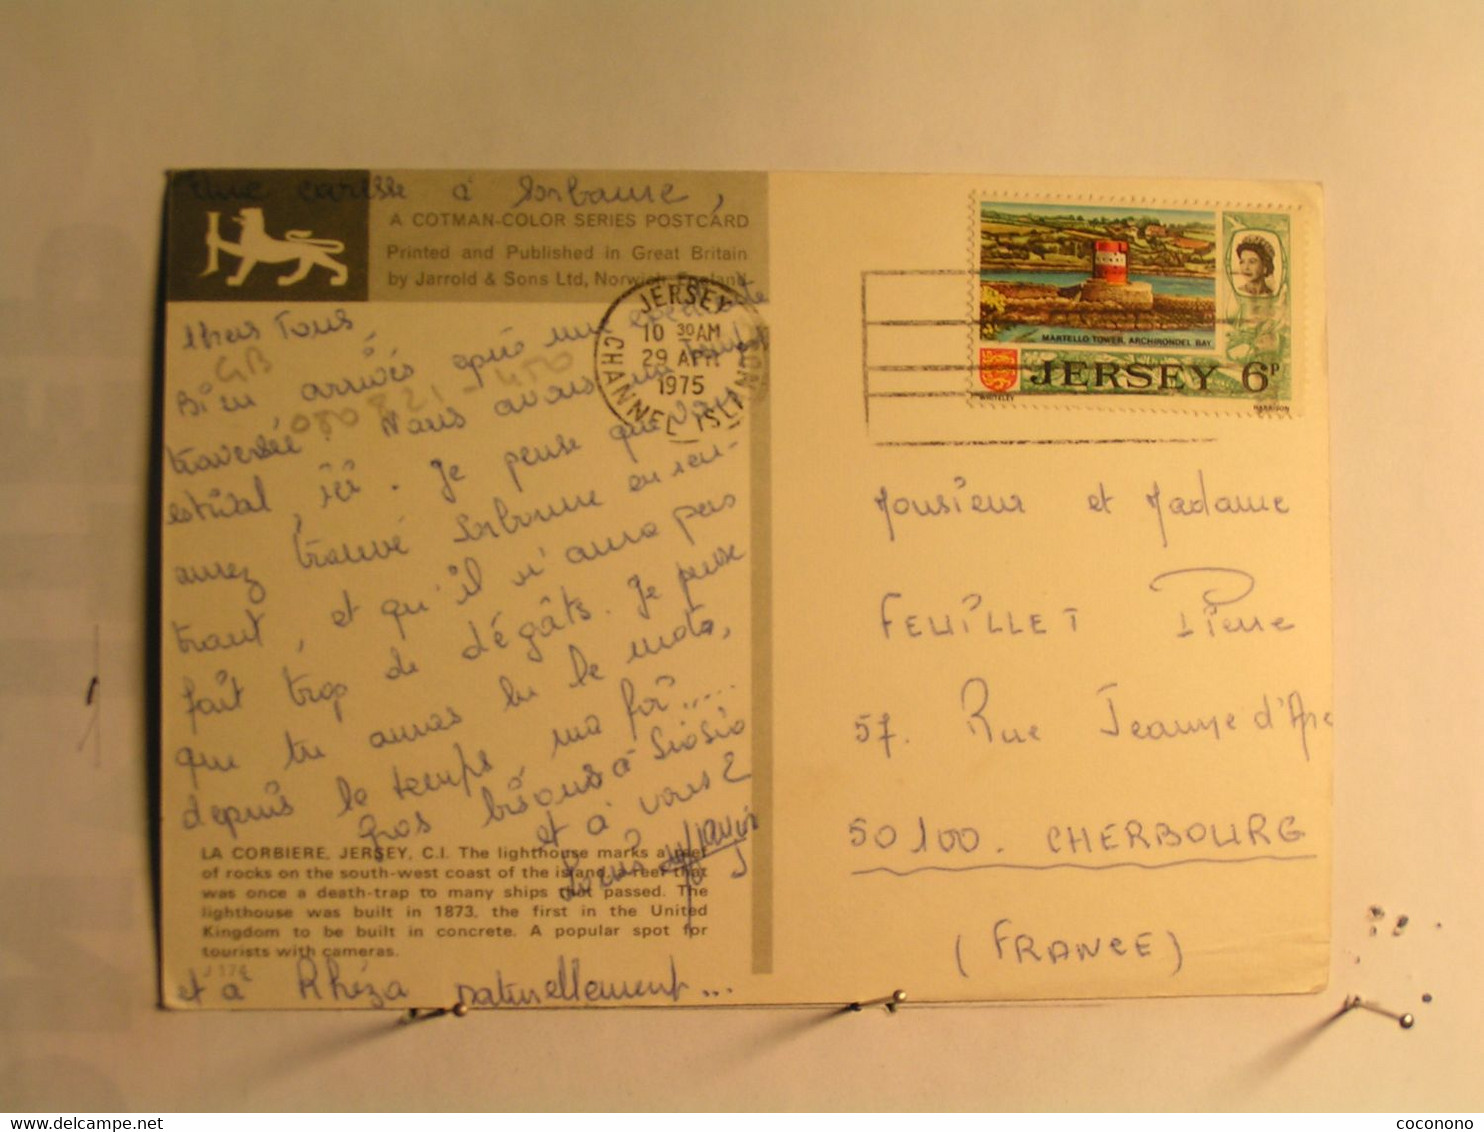 Une caresse à Sorbonne,
A COTMAN-COLOR SERIES POSTCARD
Printed and Published in Great Britain
by Jarrold & Sons Ltd, Norwich, England
Chers Tous,
Bien arrivés après une
traversée. Nous avons un
estival, ici. Je pense que vous
aurez trouvé Sorbonne en ren-
trant, et qu'il n'aura pas
fait trop de dégâts. Je pense
que tu auras lu le mots,
depuis le temps, ma foi.....
Gros bisous à
et à vous 2
GB
080821-450
LA CORBIERE, JERSEY, C.I. The lighthouse marks a reef
of rocks on the south-west coast of the island, a reef that
was once a death-trap to many ships that passed. The
lighthouse was built in 1873, the first in the United
Kingdom to be built in concrete. A popular spot for
tourists with cameras.
J 174
et à Rhéza naturellement...
JERSEY
10 30 AM
29 APR
1975
CHANNEL ISLANDS
MARTELLO TOWER, ARCHIRONDEL BAY
JERSEY 6P
WHITELEY
HARRISON
Monsieur et Madame
FEUILLET Pierre
57. Rue Jeanne d'Arc
50100. CHERBOURG
(FRANCE)
delcampe.net
coconono